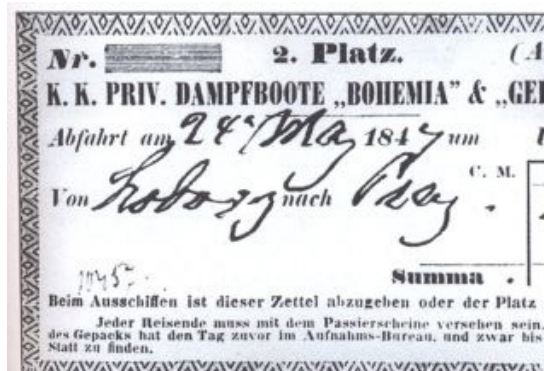 Nr. 2. Platz. (A
K. K. PRIV. DAMPFBOOTE „BOHEMIA” & „GER
Abfahrt am 24ᵗ May 1847 um
C. M.
Von nach
Summa .
Beim Ausschiffen ist dieser Zettel abzugeben oder der Platz
Jeder Reisende muss mit dem Passierscheine versehen sein,
des Gepacks hat den Tag zuvor im Aufnahms-Bureau, und zwar bis
Statt zu finden.